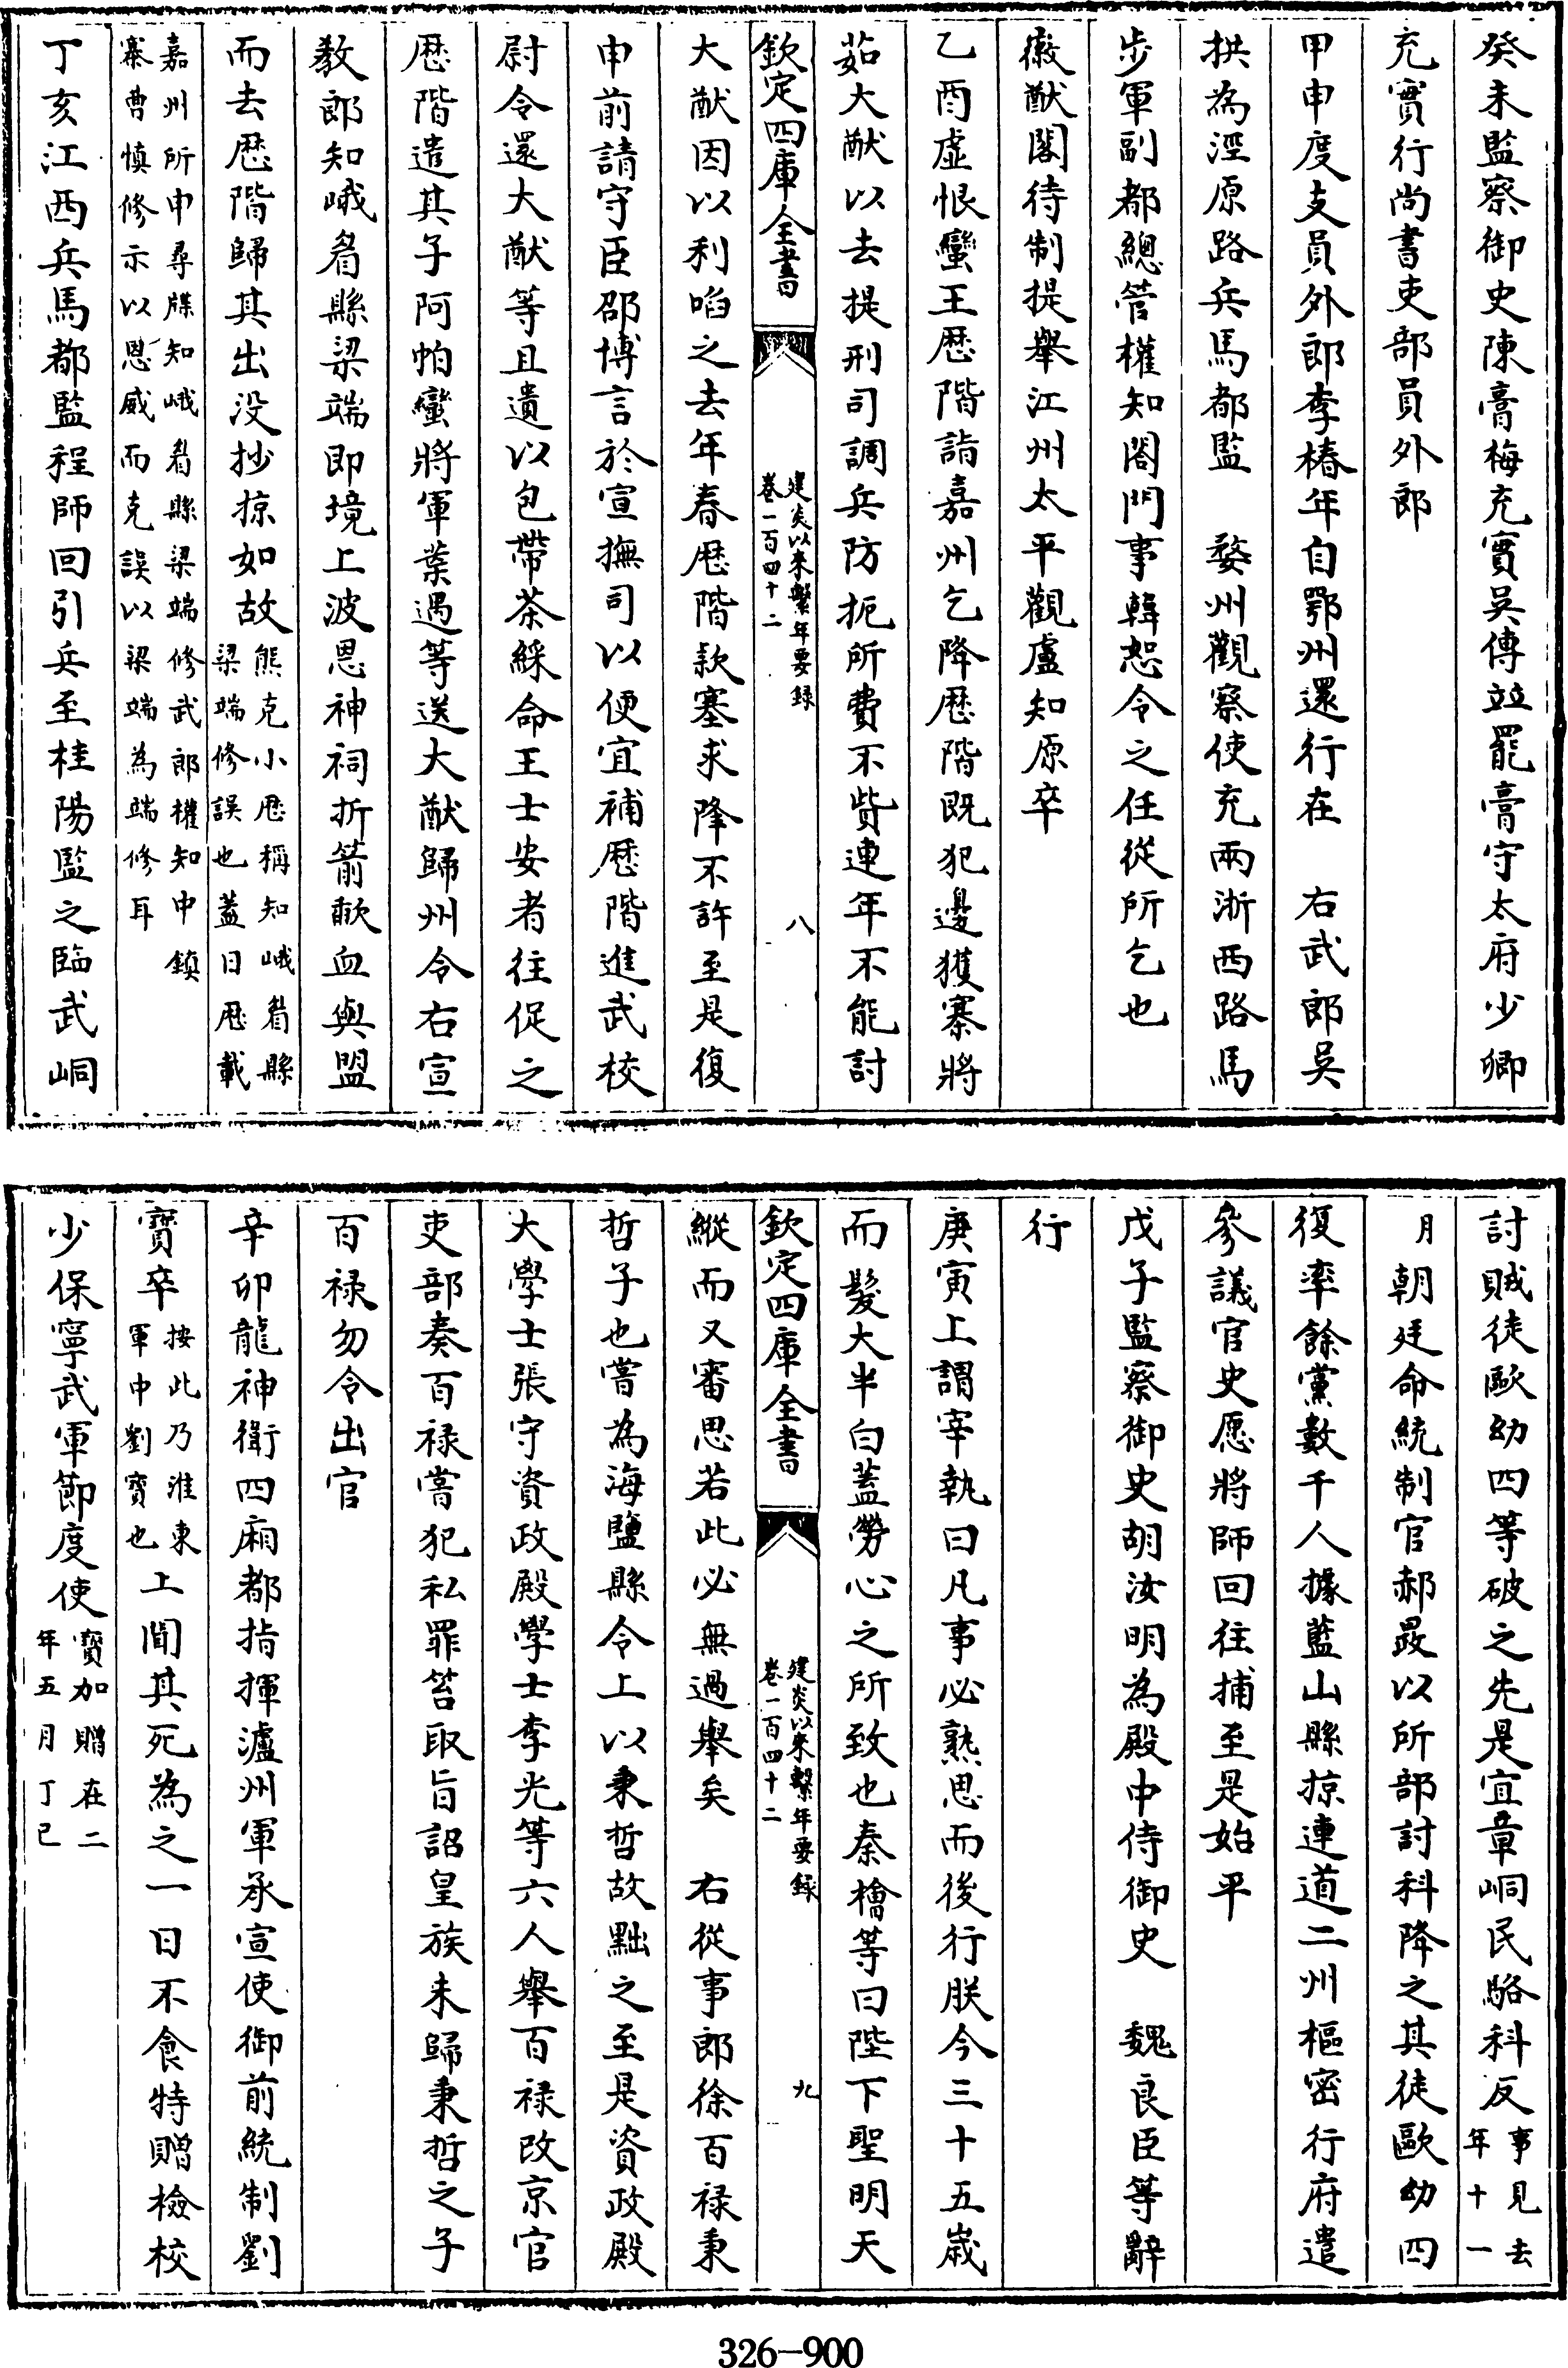 癸未監察御史陳膏梅充實吳傳竝罷膏守太府少卿
充實行尚書吏部員外郎
甲申度支員外郎李椿年自鄂州還行在　右武郎吳
拱為涇原路兵馬都監　婺州觀察使充兩浙西路馬
步軍副都總管權知閤門事韓恕令之任從所乞也
徽猷閣待制提舉江州太平觀盧知原卒
乙酉虛恨蠻王厯階詣嘉州乞降厯階既犯邊獲寨將
茹大猷以去提刑司調兵防扼所費不貲連年不能討
欽定四庫全書
建炎以來繫年要録
卷一百四十二
八
大猷因以利啗之去年春厯階款塞求降不許至是復
申前請守臣邵博言於宣撫司以便宜補厯階進武校
尉令還大猷等且遺以包帶茶綵命王士安者往促之
厯階遣其子阿帕蠻將軍葉遇等送大猷歸州令右宣
教郎知峨眉縣梁端即境上波思神祠折箭歃血與盟
而去厯階歸其出没抄掠如故
熊克小厯稱知峨眉縣
梁端修誤也蓋日厯載
嘉州所申尋牒知峨眉縣梁端修武郎權知中鎮
寨曹慎修示以恩威而克誤以梁端為端修耳
丁亥江西兵馬都監程師回引兵至桂陽監之臨武峒
討賊徒歐幼四等破之先是宜章峒民駱科反
事見去
年十一
月
朝廷命統制官郝晸以所部討科降之其徒歐幼四
復率餘黨數千人據藍山縣掠連道二州樞密行府遣
參議官史愿將師回往捕至是始平
戊子監察御史胡汝明為殿中侍御史　魏良臣等辭
行
庚寅上謂宰執曰凡事必熟思而後行朕今三十五歲
而髮大半白蓋勞心之所致也秦檜等曰陛下聖明天
欽定四庫全書
建炎以來繫年要録
卷一百四十二
九
縱而又審思若此必無過舉矣　右從事郎徐百禄秉
哲子也嘗為海鹽縣令上以秉哲故黜之至是資政殿
大學士張守資政殿學士李光等六人舉百禄改京官
吏部奏百禄嘗犯私罪笞取旨詔皇族未歸秉哲之子
百禄勿令出官
辛卯龍神衛四廂都指揮瀘州軍承宣使御前統制劉
寳卒
按此乃淮東
軍中劉寳也
上聞其死為之一日不食特贈檢校
少保寧武軍節度使
寳加贈在二
年五月丁已
326-900